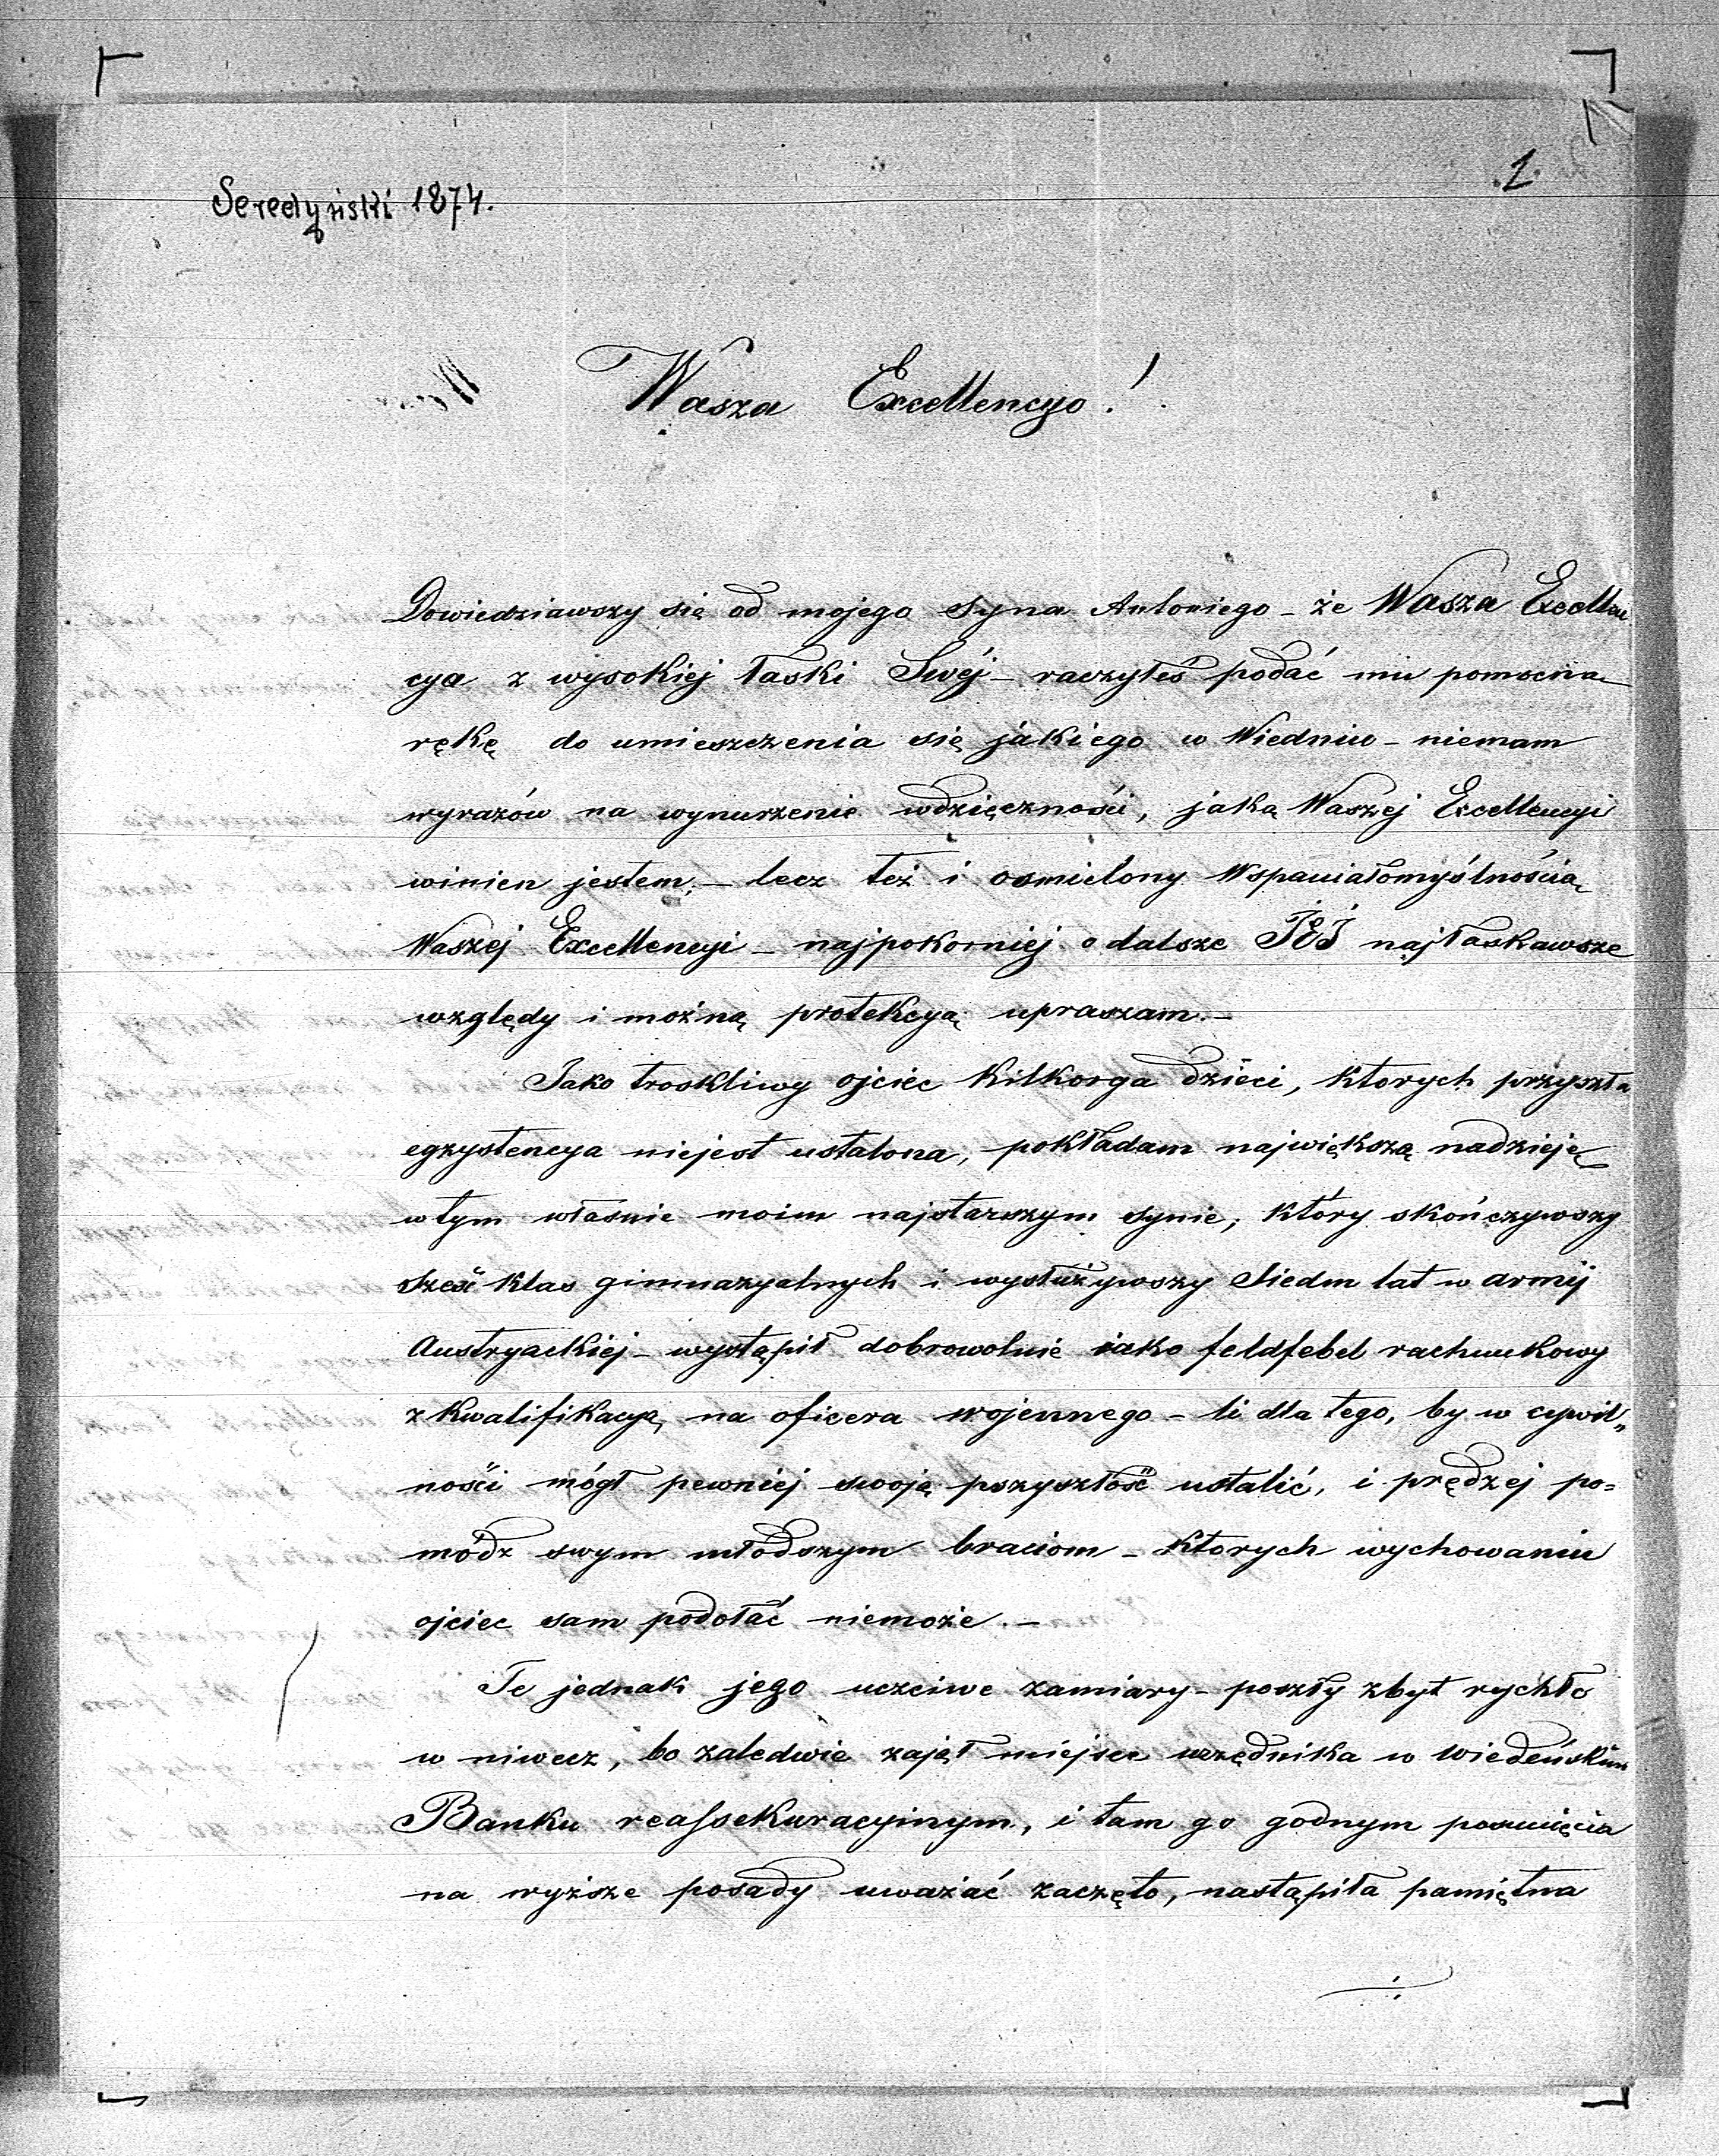 1.
Seredyński 1874.
Wasza Excellencyo!
Dowiedziawszy się od mojego syna Antoniego – że Wasza Excellen
cya z wysokiej łaski Swéj – raczyłeś podać mu pomocną
rękę do umieszczenia się jakiego w Wiedniu – niemam
wyrazów na wynurzenie wdzięcznośći, jaką Waszej Excellencyi
winien jestem; – lecz też i osmielony Wspaniałomyślnośćią
Waszej Excellencyi – najpokorniej o dalsze JEJ najłaskawsze
względy i możną protekcyą upraszam. –
Jako troskliwy ojciec kilkorga dzieci, ktorych przyszła
egzystencya niejest ustalona, pokładam największą nadzieję
w tym własnie moim najstarszym synie, który skończywszy
sześć klas gimnazyalnych i wysłużywszy Siedm lat w armij
Austryackiéj – wystąpił dobrowolnie iako feldfebel rachunkowy
z kwalifikacyą na oficera wojennego – li dla tego, by w cywil„
nośći mógł pewniéj swoją pszyszłość ustalić, i prędzej po=
módz swym młódszym braciom – ktorych wychowaniu
ojciec sam podołać niemoże. –
Te jednak jego uczciwe zamiary – poszły zbyt rychło
w niwecz, bo zaledwie zajął miejsce urzędnika w Wiedeńskim
Banku reassekuracyjnym, i tam go godnym posunięcia
na wyższe posady uważać zaczęto, nastąpiła pamiętna
./.